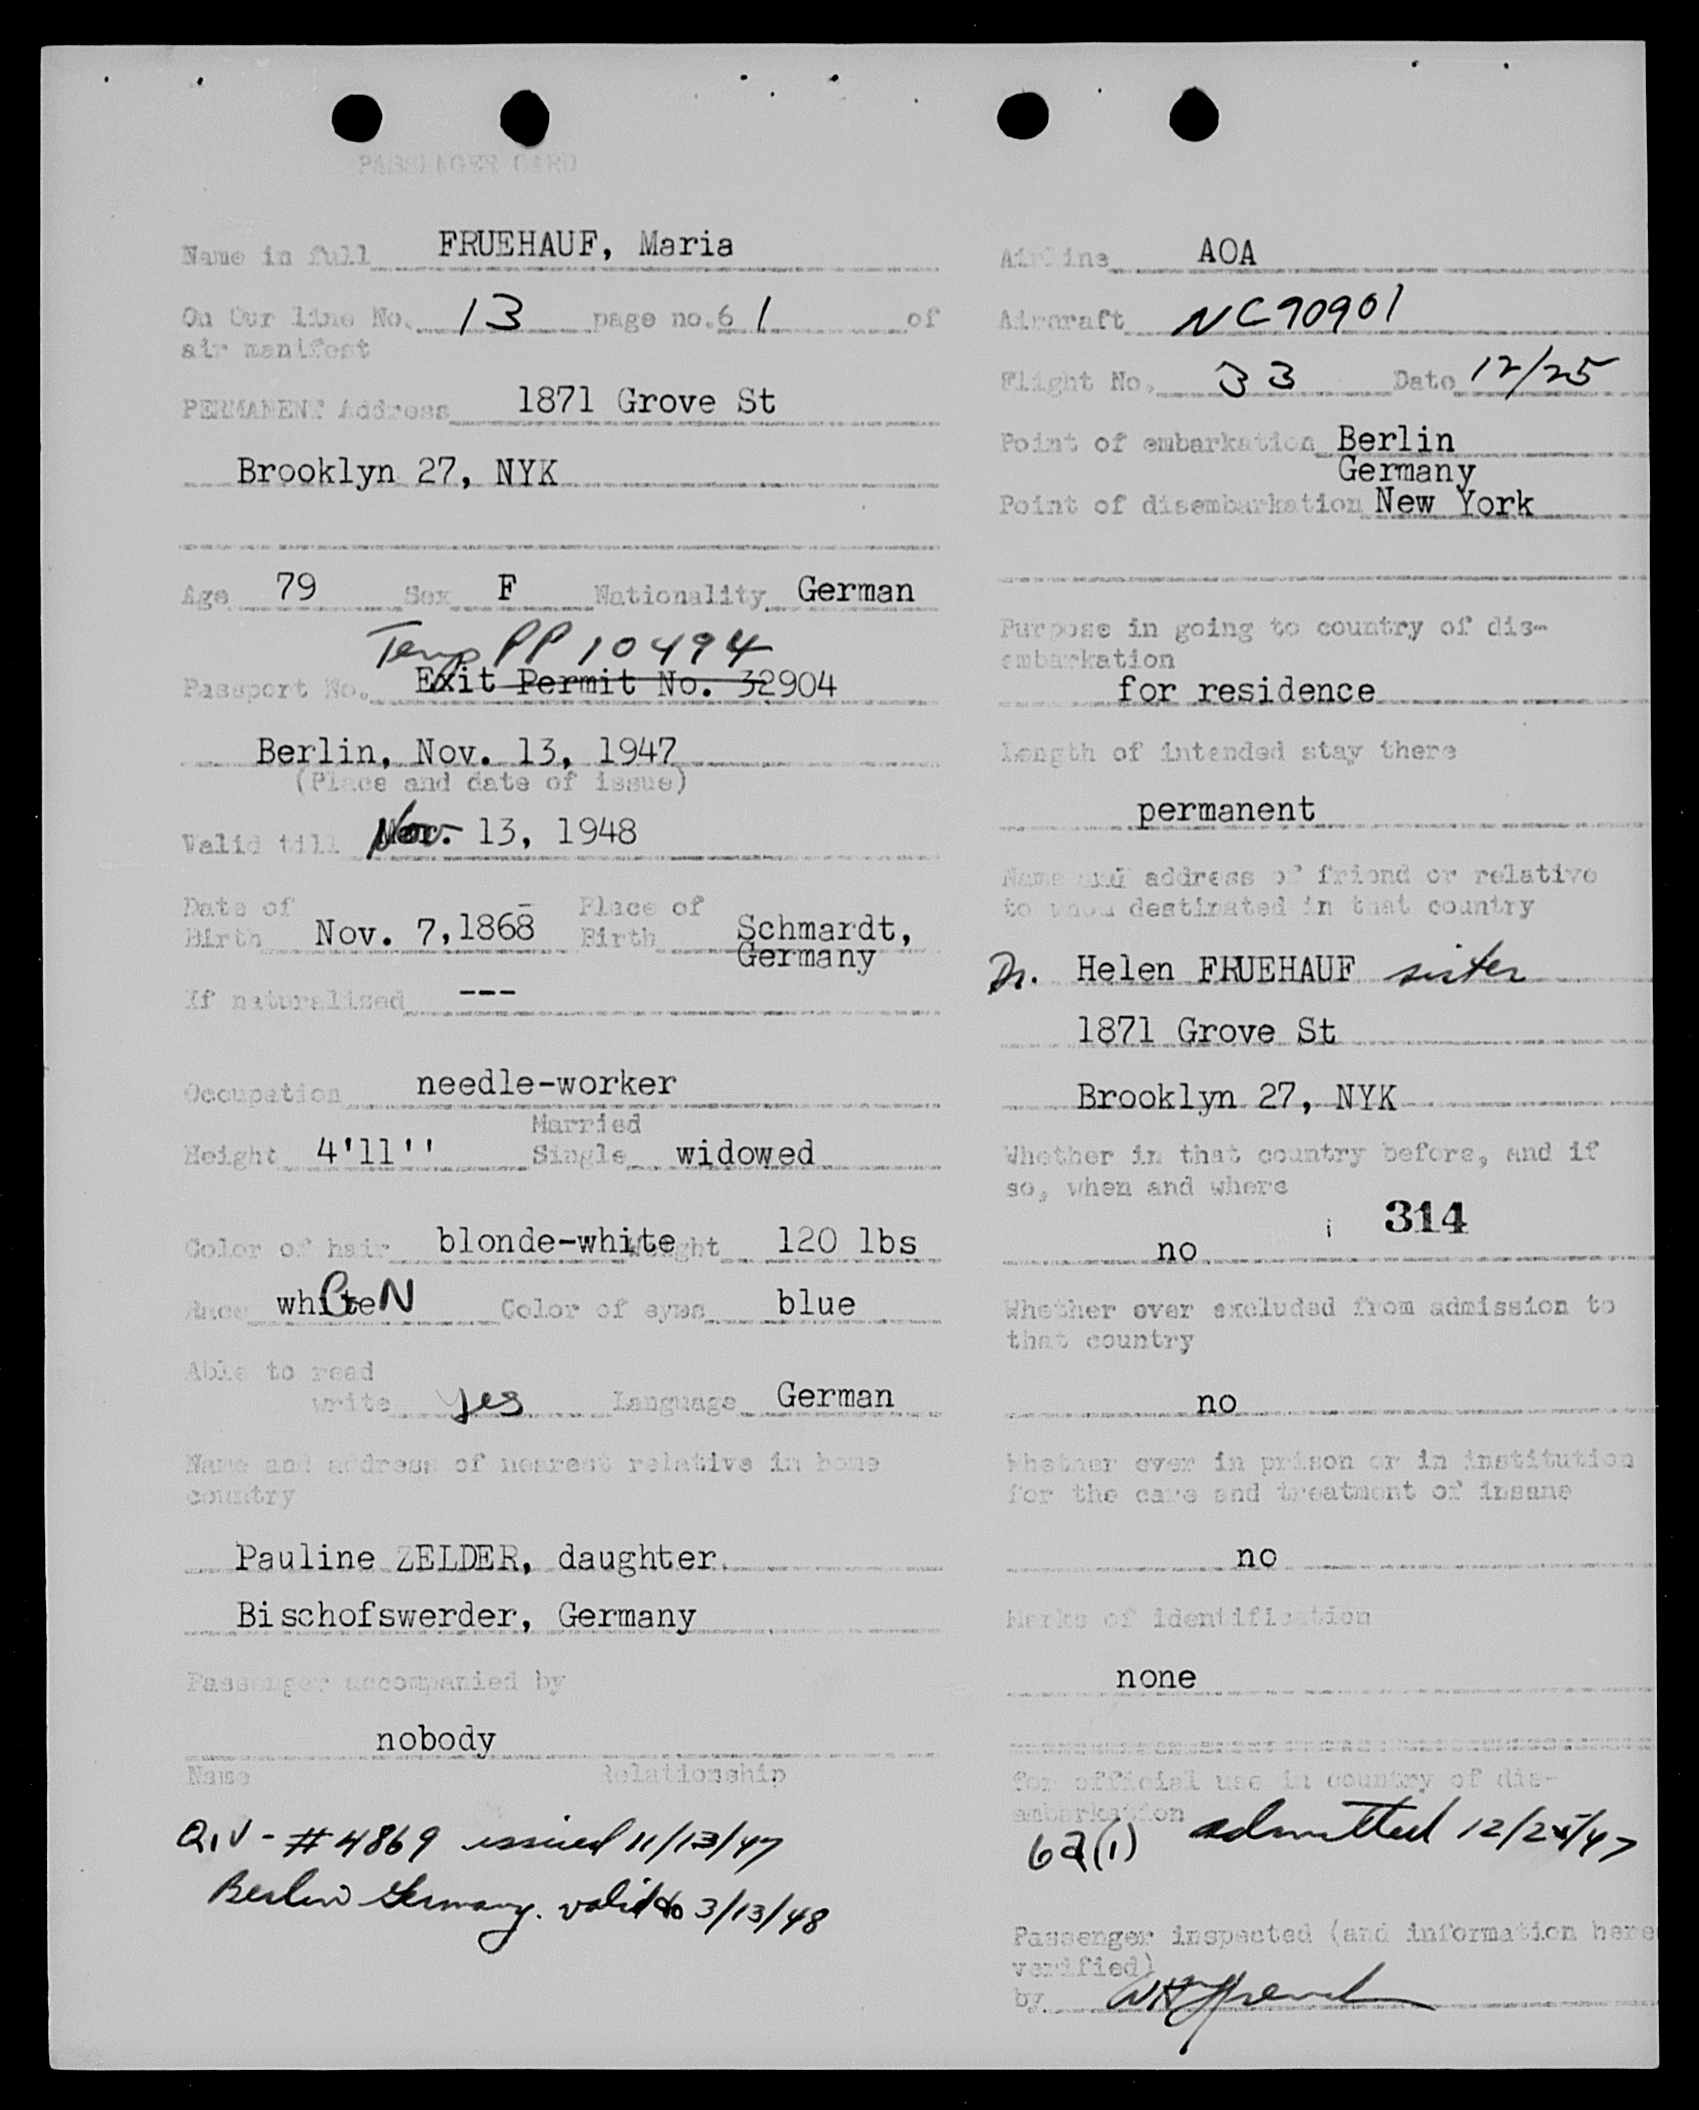 PASSENGER CARD
Name in full FRUEHAUF, Maria
On Our line No. 13 page no. 6 1 of
air manifest
PERMANENT Address 1871 Grove St
Brooklyn 27, NYK
Age 79 Sex F Nationality German
Temp PP 10494
Passport No. Exit Permit No. 32904
Berlin, Nov. 13, 1947
(Place and date of issue)
Valid till Nov. 13, 1948
Date of Place of
Birth Nov. 7, 1868 Birth Schmardt,
Germany
If naturalised ---
Occupation needle-worker
Married
Height 4'11'' Single widowed
Color of hair blonde-white Weight 120 lbs
Race white N Color of eyes blue
Able to read
write yes Language German
Name and address of nearest relative in home
country
Pauline ZELDER, daughter
Bischofswerder, Germany
Passenger accompanied by
nobody
Name Relationship
Q.I.V - #4869 issued 11/13/47
Berlin Germany. valid to 3/13/48
Airline AOA
Aircraft NC90901
Flight No. 33 Date 12/25
Point of embarkation Berlin
Germany
Point of disembarkation New York
Purpose in going to country of dis-
embarkation
for residence
Length of intended stay there
permanent
Name and address of friend or relative
to whom destinated in that country
Helen FRUEHAUF sister
1871 Grove St
Brooklyn 27, NYK
Whether in that country before, and if
so, when and where
314
no
Whether ever excluded from admission to
that country
no
Whether ever in prison or in institution
for the care and treatment of insane
no
Marks of identification
none
for official use in country of dis-
embarkation
6a(1) admitted 12/25/47
Passenger inspected (and information here
verified)
by